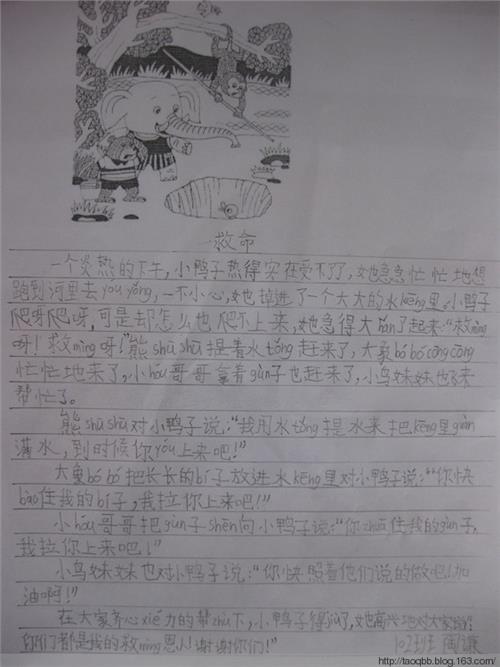 救命
一个炎热的下午，小鸭子热得实在受不了，她急急忙忙地想
跑到河里去yóu yǒng，一不小心，她掉进了一个大大的水kēng里。小鸭子
爬呀爬呀，可是却怎么也爬不上来，她急得大hǎn了起来：“救mìng
呀！救mìng呀！”熊shū shū提着水tǒng赶来了，大象bó bó cōng cōng
忙忙地来了，小hóu哥哥拿着gùn子也赶来了，小鸟妹妹也来
帮忙了。
熊shū shū对小鸭子说：“我用水tǒng提水来把kēng里guàn
满水，到时候你yóu上来吧！”
大象bó bó把长长的bí子放进水kēng里对小鸭子说：“你快
bào住我的bí子，我拉你上来吧！”
小hóu哥哥把gùn子shēn向小鸭子说：“你zhuā住我的gùn子，
我拉你上来吧！”
小鸟妹妹也对小鸭子说：“你快照着他们说的做吧！加
油啊！”
在大家齐心xié力的帮zhù下，小鸭子得jiù了，她高兴地对大家说：
“你们都是我的救mìng恩人！谢谢你们！”
102班 陶谦
http://taoqbb.blog.163.com/